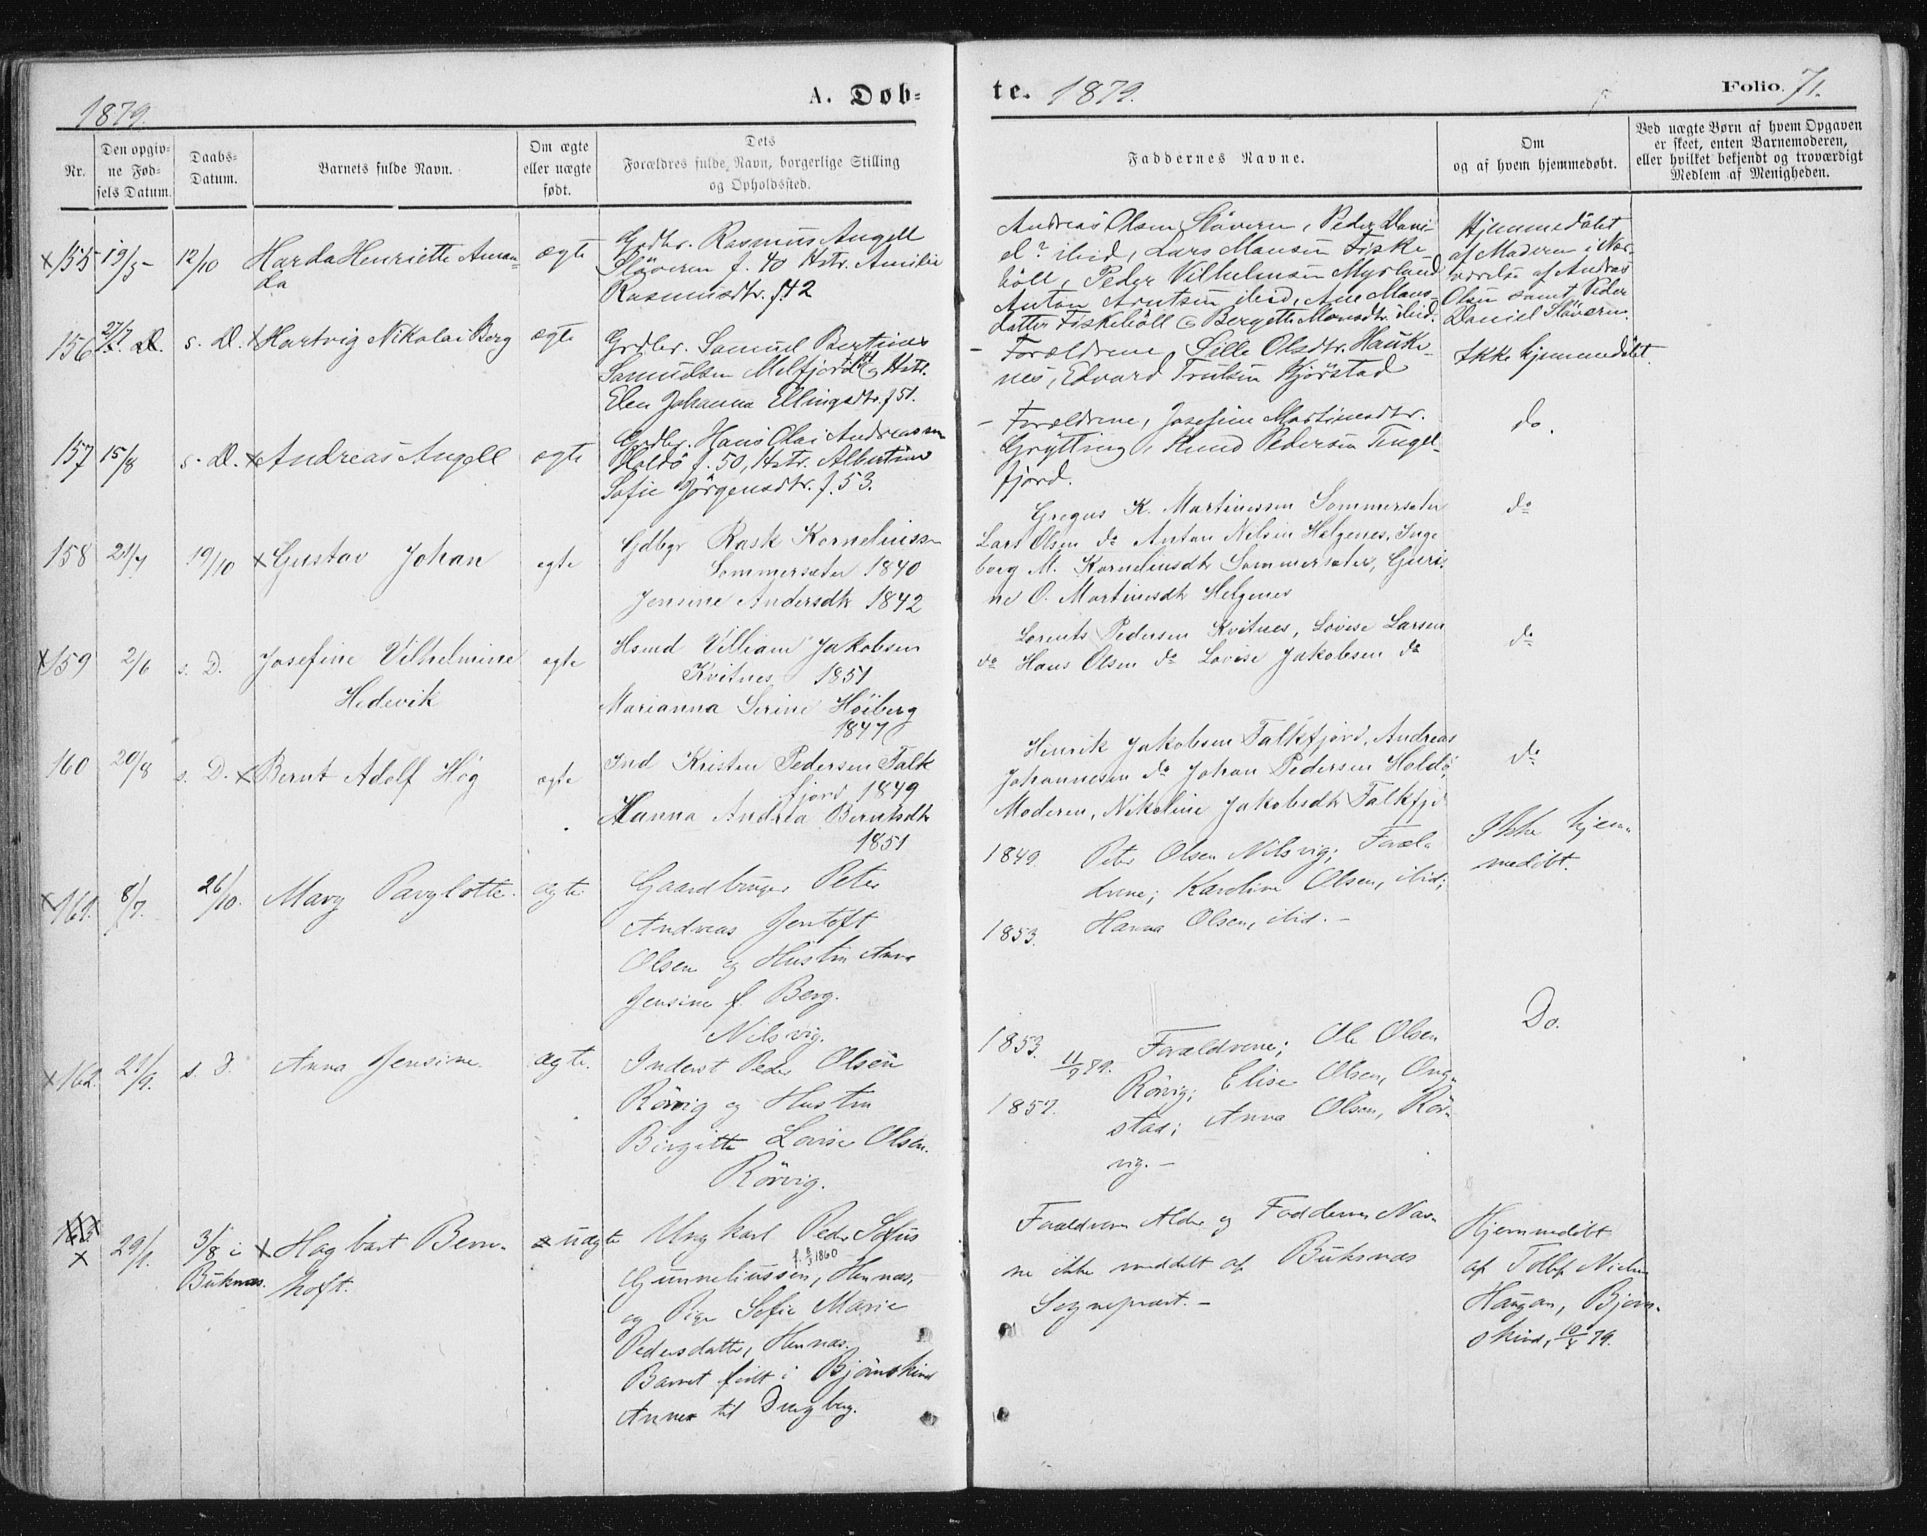 1879.
A. Døb-
te. 1879.
Folio 71.
Nr.
Den opgiv-
ne Fød-
sels Datum.
Daabs-
Datum.
Barnets fulde Navn.
Om ægte
eller uægte
født.
Dets
Forældres fulde Navn, borgerlige Stilling
og Opholdssted.
Faddernes Navne.
Om
og af hvem hjemmedøbt.
Ved uægte Børn af hvem Opgaven
er skeet, enten Barnemoderen,
eller hvilket bekjendt og troværdigt
Medlem af Menigheden.
x 155 19/5 12/10 Harda Henriette Aman-
da
ægte
Grdbr. Rasmus Angell
Slåveren f. 40 Hstr. Amilie
Rasmusdtr. f. 42
Andreas Olsen Slåveren, Peder Dani-
el? ibid, Lars Monsen Fiske-
böll, Peder Vilhelmsen Myrland
Anton Arntsen ibid, Ane Mons-
datter Fiskeböll & Bergette Monsdtr. ibid.
Hjemmedöbt
af Moderen i Nær-
værelse af Andreas
Olsen samt Peder
Daniel Slåveren.
156 27/7 s. D. x Hartvig Nikolai Berg
ægte
Grdbr. Samuel Bertines
Samuelsen Melfjord & Hstr.
Elen Johanna Ellingsdtr. f 51.
- Forældrene, Sille Olsdtr. Hauke-
nes, Edvard Trulsen Kjörstad
Ikke hjemmedöbt.
157 15/8 s. D. x Andreas Angell
ægte
Grdbr. Hans Olai Andreassen
Holdö f. 50, Hstr. Albertine
Sofie Jörgensdtr. f. 53.
- Forældrene, Josefine Martinesdtr.
Grytting, Knud Pedersen Tengel-
fjord.
do.
158 21/7 19/10 x Gustav Johan
ægte
Gdbgr Rask Korneliussen
Sommersæter 1840
Jensine Andersdtr 1842
Gregus K. Martinussen Sommersæter
Lars Olsen do Anton Nilsen Helgenes, Inge
borg M. Korneliusdtr Sommersæter, Guri-
ne O. Martinesdtr Helgenes
do
x 159 2/6 s. D. Josefine Vilhelmine
Hedevik
ægte
Hsmd Villiam Jakobsen
Kvitnes 1851
Marianna Serine Höiberg
1847
Lorents Pedersen Kvitnes, Lovise Larsen
do Hans Olsen do Lovise Jakobsen do
do
160 20/8 s. D. x Bernt Adolf Hög
ægte
Ind Kristen Pedersen Falk
fjord 1849
Hanna Andrea Berntsdtr
1851
Henrik Jakobsen Falkfjord, Andreas
Johannesen do Johan Pedersen Holdö,
Moderen, Nikoline Jakobsdtr Falkfjd
do
x 161. 8/7. 26/10. Mary Parylotte.
ægte
Gaardbruger Peter
Andreas Jentoft
Olsen og Hustru Anne
Jensine f. Berg.
Nilsvig.
1849. Peter Olsen Nilsvig; Foræl-
drene; Karoline Olsen, ibid;
1853. Hanna Olsen, ibid. -
Ikke hjem-
medöbt.
x 162. 21/9. s. D. Anna Jensine.
ægte.
Inderst Peder Olsen
Rörvig og Hustru
Birgitte Lovise Olsen.
Rörvig.
1853. 11/9 79. Forældrene; Ole Olsen
1857. Rörvig; Elise Olsen, Ong-
stad; Anna Olsen, Rör-
vig. -
Do.
163 x 29/1. 3/8 i
Buksnæs.
x Hagbart Bern-
hoft.
uægte
Ungkarl Peder Sofus
f. 1860
Gunneliussen, Hennæs,
og Pige Sofie Marie
Pedersdatter, Hennæs.
Barnet födt i Björnskind
Annex til Dverberg.
Forældrenes Alder og Faddernes Nav-
ne ikke meddelt af Buksnæs
Sognepræst. -
Hjemmedöbt
af Nielsen
Haugan, Björn-
skind, 79.